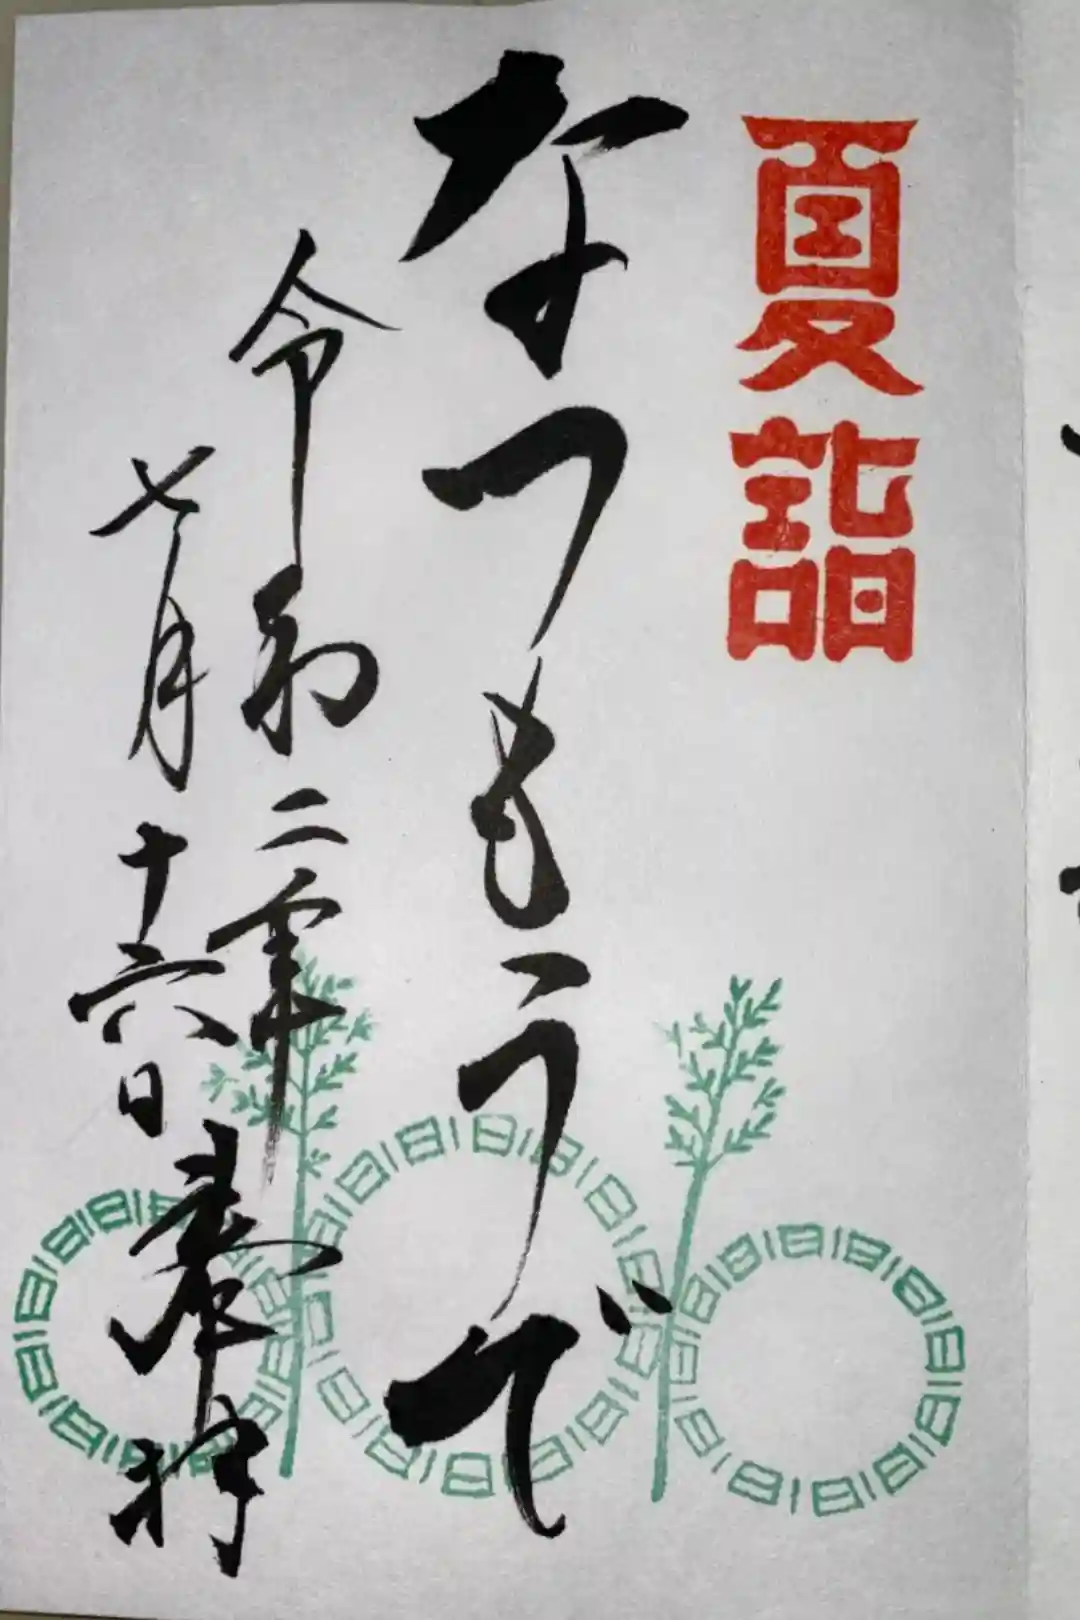 夏詣
なつもうで
令和二年
七月十六日奉拝